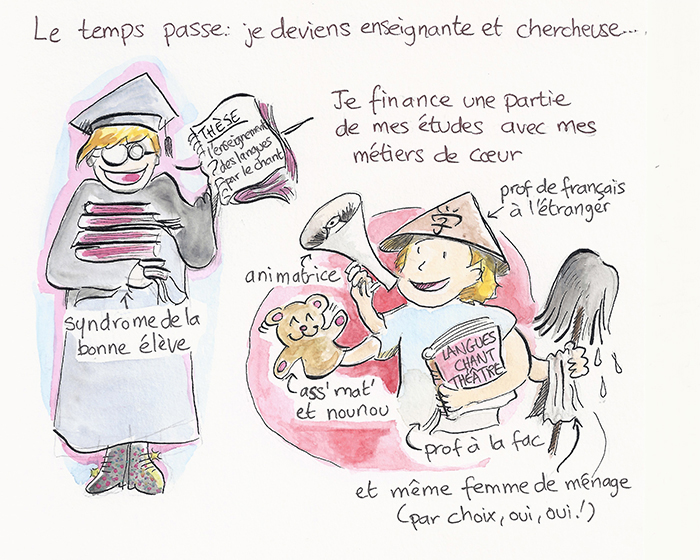 Le temps passe: je deviens enseignante et chercheuse...
THÈSE
l'enseignement
des langues
par le chant
Je finance une partie
de mes études avec mes
métiers de cœur
prof de français
à l'étranger
字
animatrice
syndrome de la
bonne élève
LANGUES
CHANT
THÉÂTRE
ass' mat'
et nounou
prof à la fac
et même femme de ménage
(par choix, oui, oui!)